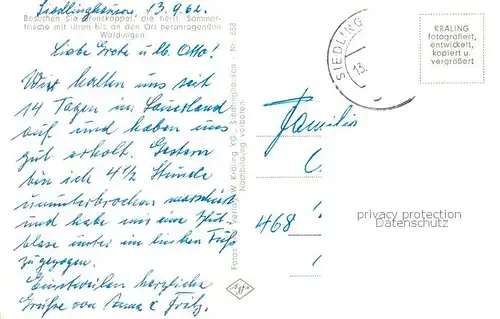 Siedlinghausen, 13.9.62.
Besuchen Sie Brunskappel, die herrl. Sommer-
frische mit ihren bis an den Ort heranragenden
Waldungen
Liebe Grete u. lb. Otto!
Wir halten uns seit
14 Tagen im Sauerland
auf und haben uns
gut erholt. Gestern
bin ich 4½ Stunde
ununterbrochen marschiert
und habe mir eine Blut
blase unter im linken Fuß
zugezogen.
Einstweilen herzliche
Grüße von Anna & Fritz.
Fotogr. u. Verlag W. Kräling KG., Siedlinghausen - Nr. 688
Nachbildung verboten
SIEDLING
13.
KRALING
fotografiert,
entwickelt,
kopiert u.
vergrößert
Familie
C.
468
privacy protection
Datenschutz